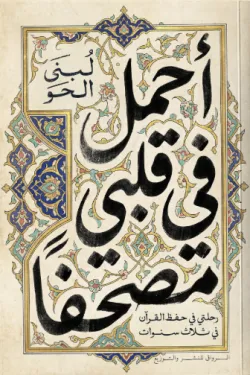 لُبنى
الحو
أحمل
في قلبي
مصحفًا
رحلتي في حفظ القرآن
في ثلاث سنوات
الرواق للنشر والتوزيع